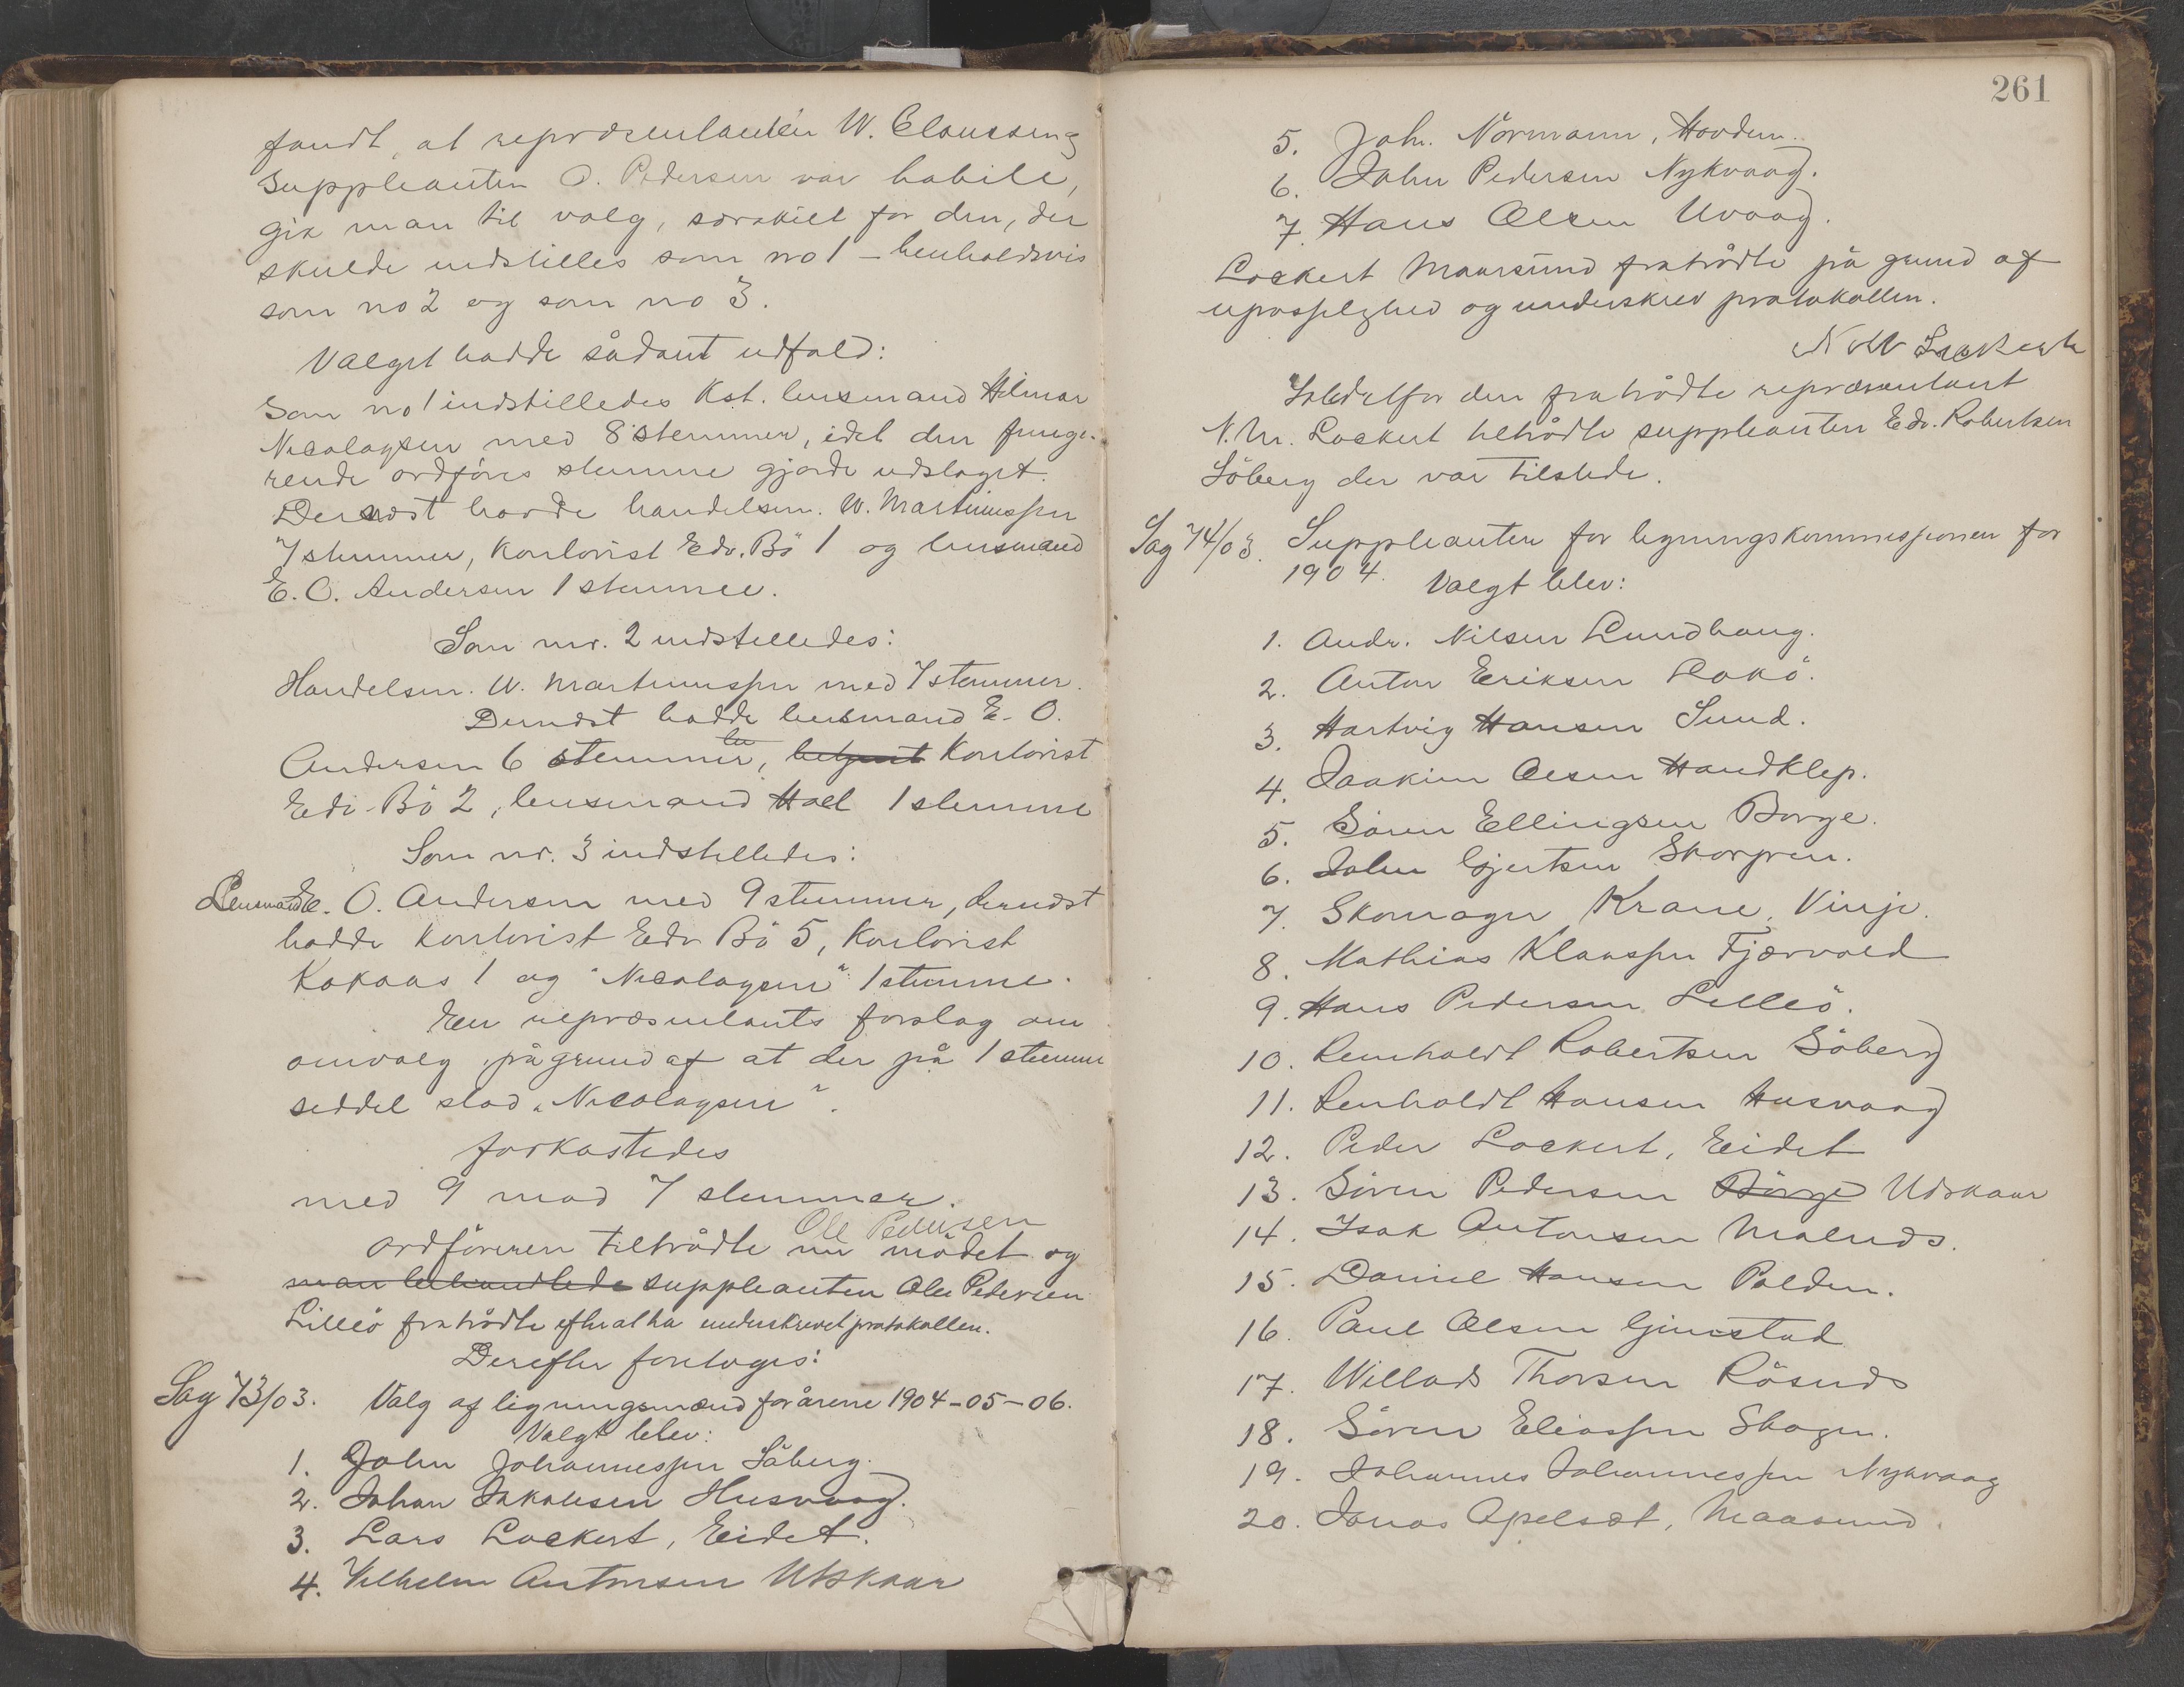 fandt, at repræsentanten W. Claussen og
suppleanten O. Pedersen var habile,
gik man til valg, særskilt for den, der
skulde indstilles som no 1 – henholdsvis
som no 2 og som no 3.
Valget hadde sådant udfald:
Som no 1 indstilledes Kst. lensmand Hilmar
Nicolaysen med 8 stemmer, idet den funge-
rende ordförers stemme gjorde udslaget.
Dernæst havde handelsm. W. Martinussen
7 stemmer, Kontorist Edv. Bö 1 og lensmand
E. O. Andersen 1 stemme.
Som nr. 2 indstilledes:
Handelsm. W. Martinussen med 7 stemmer.
Dernæst hadde lensmand E. O.
Andersen 6 stemmer, Kontorist
Edv. Bö 2, lensmand Hall 1 stemme
Som nr. 3 indstilledes:
Lensmand E. O. Andersen med 9 stemmer, dernæst
hadde Kontorist Edv Bö 5, Kontorist
Kokaas 1 og "Nicolaysen" 1 stemme.
En repræsentants forslag om
omvalg på grund af at der på 1 stemme
seddel stod "Nicolaysen".
forkastedes
med 9 mod 7 stemmer.
Ole Pedersen
Ordföreren tiltrådte nu mödet og
man behandlede suppleanten Ole Pedersen
Lilleö fratrådte efter at ha underskrevet protokollen.
Derefter foretoges:
Sag 73/03. Valg af ligningsmænd for årene 1904-05-06.
Valgt blev:
1. John Johannessen Såberg.
2. Johan Jakobsen Husvaag.
3. Lars Lockert, Eidet.
4. Vilhelm Antonsen Utskaar
261
5. Joh. Normann, Hovden.
6. John Pedersen Nykvaag.
7. Hans Olsen Uvaag.
Lockert Maarsund fratrådte på grund af
upasselighed og underskrev protokollen.
N M Lockert
Istedetfor den fratrådte repræsentant
N. M. Lockert tiltrådte suppleanten Edv. Robertsen
Söberg der var tilstede.
Sag 74/03. Suppleanter for ligningskommissionen for
1904. Valgt blev:
1. Andr. Nilsen Lundhaug.
2. Anton Eriksen Rokö.
3. Hartvig Hansen Sund.
4. Joakim Olsen Handklep.
5. Sören Ellingsen Borge.
6. John Gjertsen Skorpen.
7. Skomager Krane, Vinje.
8. Mathias Klaussen Fjærvold
9. Hans Pedersen Lilleö.
10. Renholdt Robertsen Söberg
11. Renholdt Hansen Husvaag
12. Peder Lockert, Eidet
13. Sören Pedersen Börge Udskaar
14. Isak Antonsen Malnds.
15. Daniel Hansen Polden.
16. Paul Olsen Gimstad
17. Willads Thorsen Rösnds
18. Sören Eliassen Skogen.
19. Johannes Johannessen Nykvaag
20. Jonas Apelsæt, Maasund.